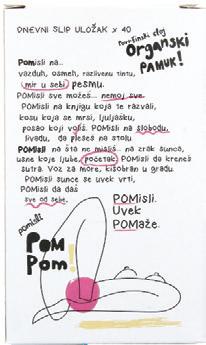 DNEVNI SLIP ULOŽAK x 40
površinski sloj
ORGANSKI
PAMUK!
POMisli na...
vazduh, osmeh, razlivenu tintu,
mir u sebi, pesmu.
POMisli sve možeš... nemoj sve.
POMisli na knjigu koja te razvali,
kosu koja se mrsi, ljuljašku,
posao koji voliš. POMisli na slobodu,
livadu, da plešeš na stolu
POMisli na šta ne misliš... na zrak sunca,
usne koje ljube, početak. POMisli da kreneš
sutra. Voz za more, kišobran u gradu.
POMisli sunce se uvek vrti,
POMisli da daš
sve od sebe.
POMisli.
Uvek
POMaže.
pomisli!
POM
POM!